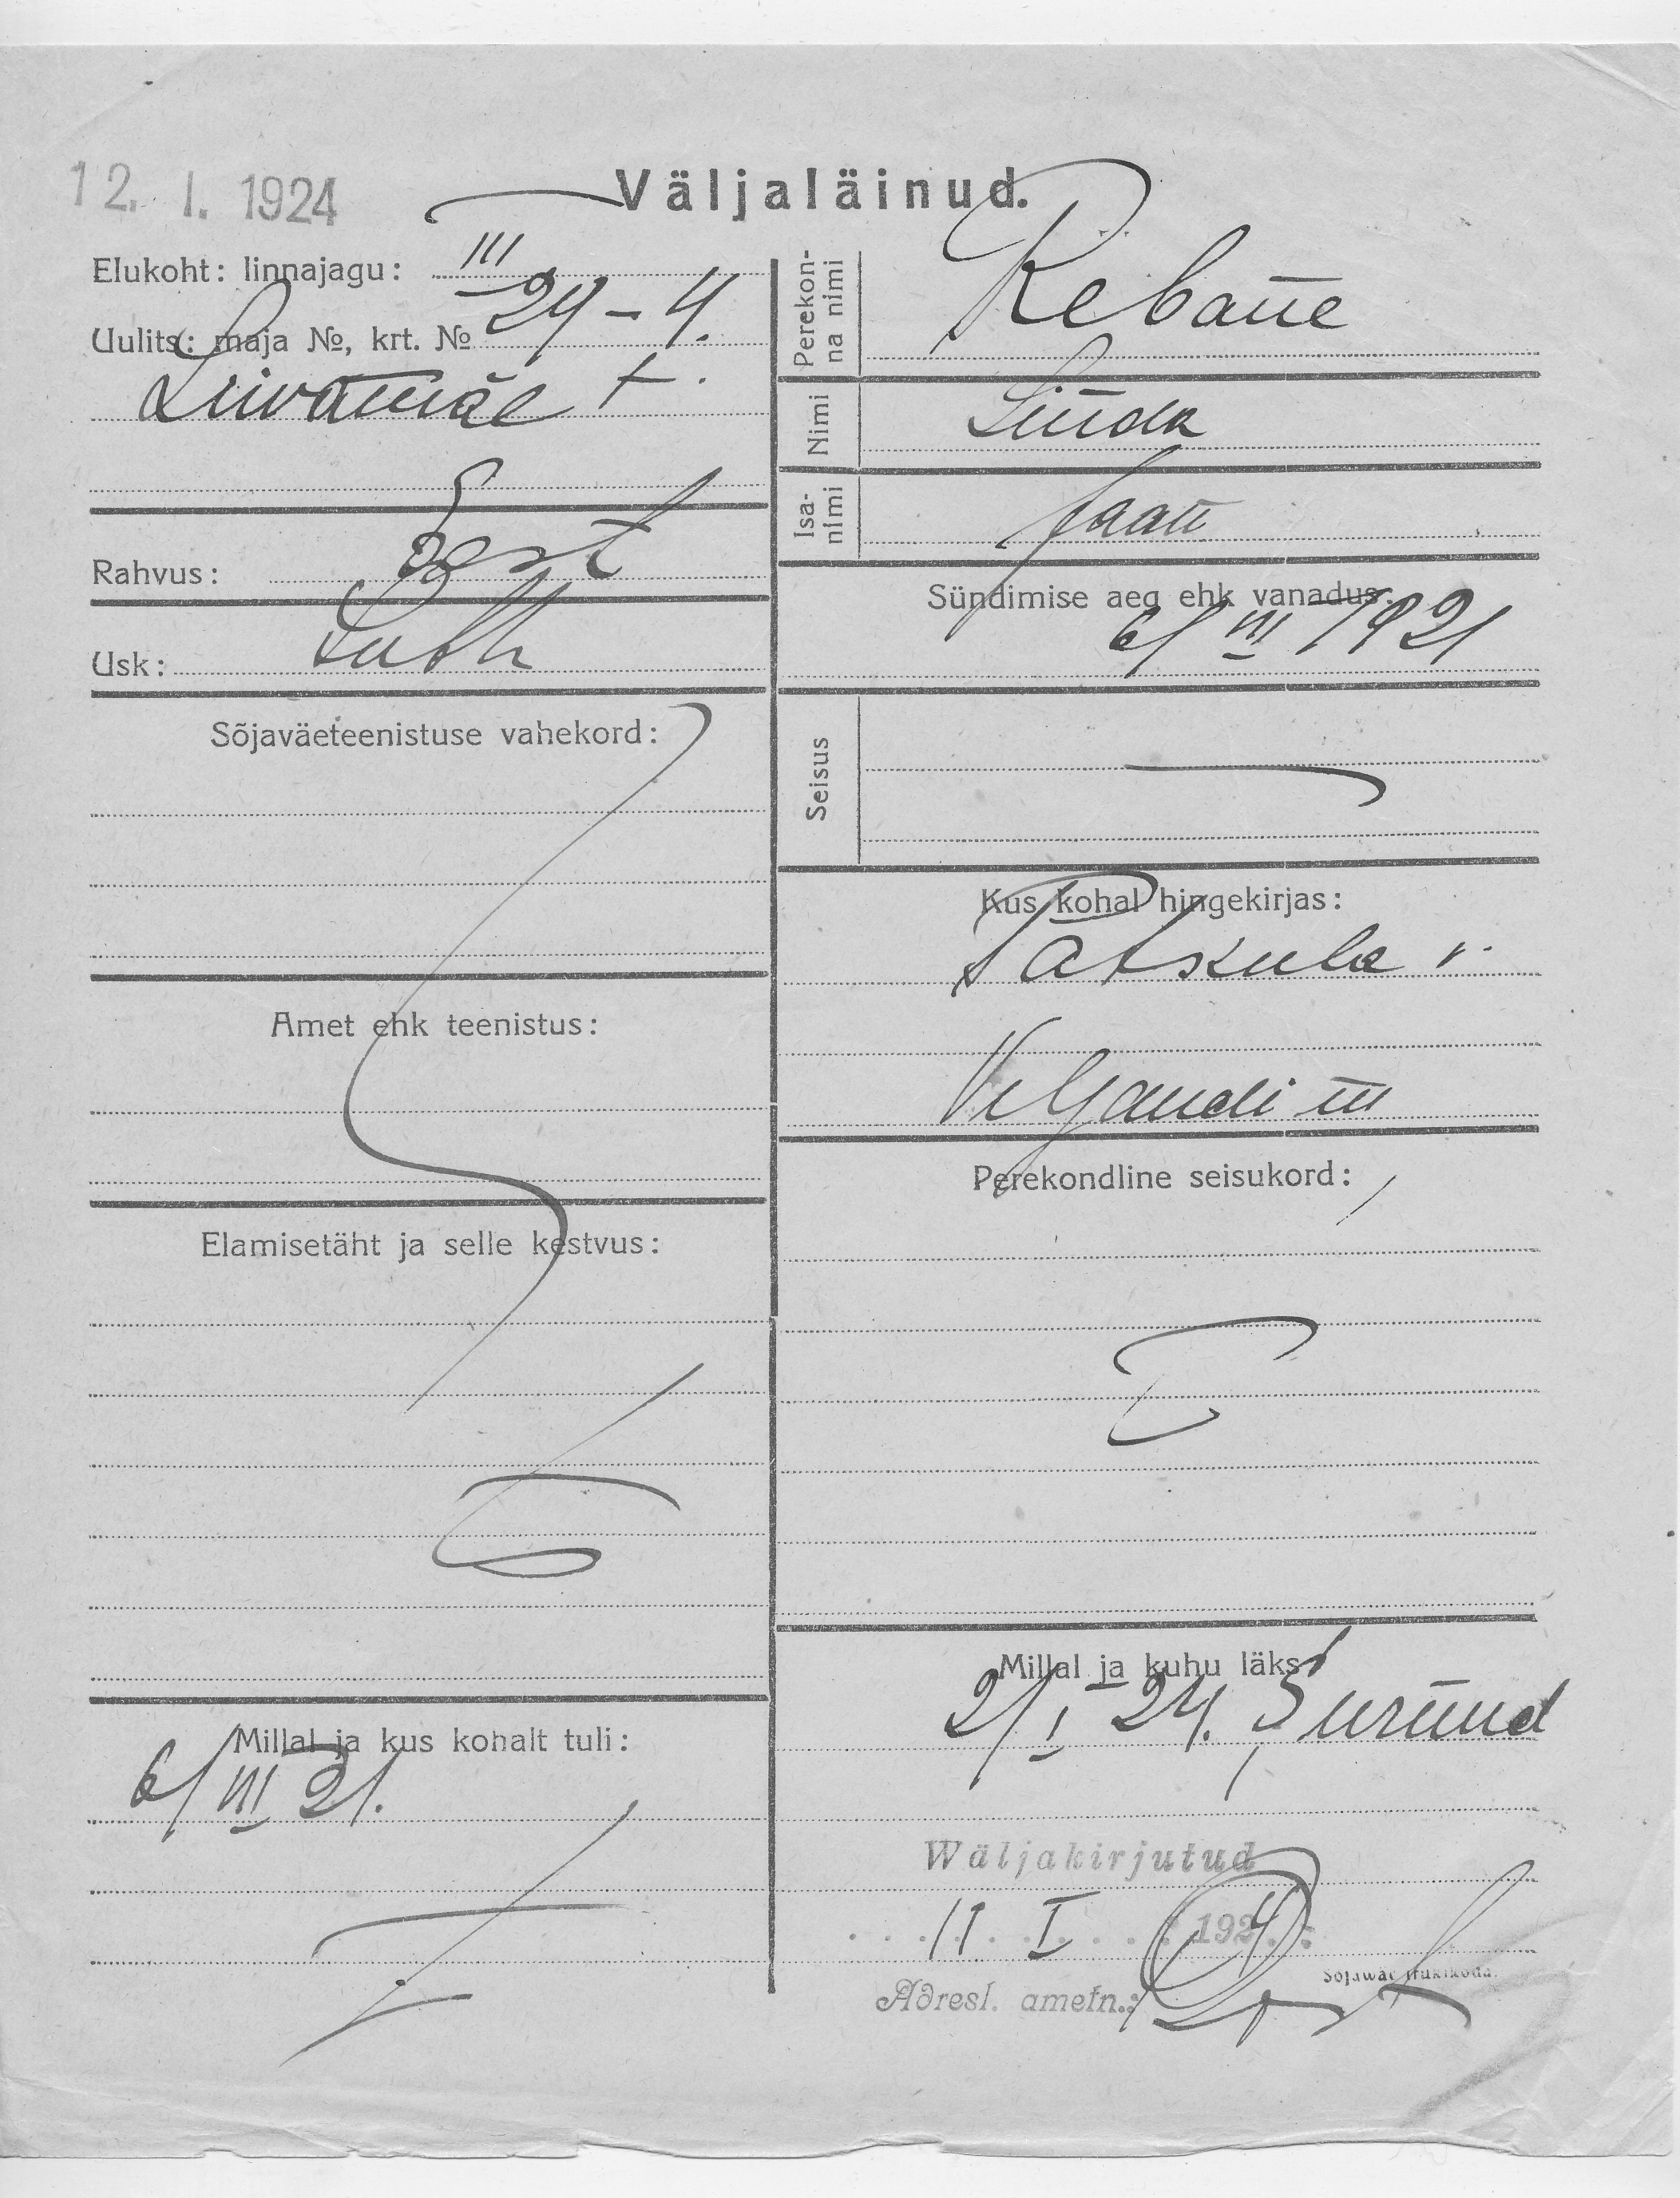 12. I. 1924
Väljaläinud.
Elukoht: linnajagu: III
Uulits: maja №, krt. № 24 – 4.
Liivamäe t.
Rahvus: Eest
Usk: Luth
Sõjaväeteenistuse vahekord:
Amet ehk teenistus:
Elamisetäht ja selle kestvus:
Millal ja kus kohalt tuli:
6/III 21.
Perekonna nimi Rebane
Nimi Linda
Isanimi Jaan
Sündimise aeg ehk vanadus.
6/III 1921
Seisus
Kus kohal hingekirjas:
v.
Viljandi m
Perekondline seisukord:
Millal ja kuhu läks
2/I 24. Surnud
Wäljakirjutud
11. I 1924
Adresl. ametn.:
Sõjawäe trükikoda.